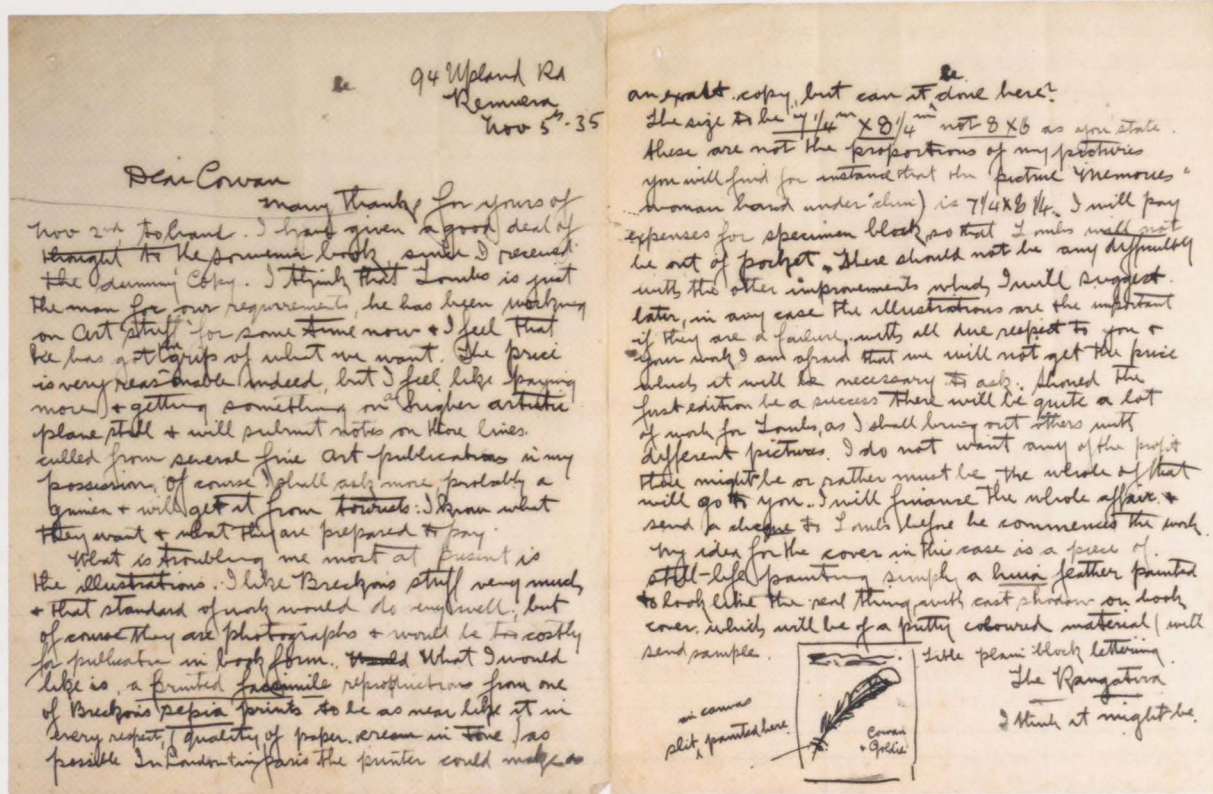 94 Upland Rd
Remuera
Nov 5th - 35
Dear Cowan
Many thanks for yours of
Nov 2nd to hand. I have given a good deal of
thought to the souvenir book, since I received
the dummy copy. I think that Tombs is just
the man for our requirements, he has been working
on Art stuff for some time now & I feel that
he has got the grip of what we want. The price
is very reasonable indeed, but I feel like paying
more & getting something on a higher artistic
plane still & will submit notes on those lines
culled from several fine Art publications in my
possession, of course I shall ask more probably a
guinea & will get it from tourists: I know what
they want & what they are prepared to pay.
What is troubling me most at present is
the illustrations. I like Breckons stuff very much
& that standard of work would do very well; but
of course they are photographs & would be too costly
for publication in book form. Would What I would
like is, a printed facsimile reproductions from one
of Breckons sepia prints to be as near like it in
every respect, (quality of paper. cream in tone) as
possible In London or in Paris the printer could make
be
an exact copy, but can it be done here?
The size to be 7 1/4 in X 8 1/4 in not 8 X 6 as you state.
these are not the proportions of my pictures
you will find for instance that the picture "Memories"
woman hand under chin) is 7 1/4 X 8 1/4. I will pay
expenses for specimen block, so that Tombs will not
be out of pocket. There should not be any difficulty
with the other improvements which I will suggest
later, in any case the illustrations are the important
if they are a failure, with all due respect to you &
your work I am afraid that we will not get the price
which it will be necessary to ask. Should the
first edition be a success there will be quite a lot
of work for Tombs, as I shall bring out others with
different pictures. I do not want any of the profit
there might be or rather must be the whole of that
will go to you. I will finance the whole affair &
send a cheque to Tombs before he commences the work
My idea for the cover in this case is a piece of
still-life painting simply a huia feather painted
to look like the real thing, with cast shadow on book
cover. which will be of a putty coloured material (will
send sample.
Title plain block lettering
The Rangatira
I think it might be.
in canvas
slit, painted here.
Cowan
& Goldie